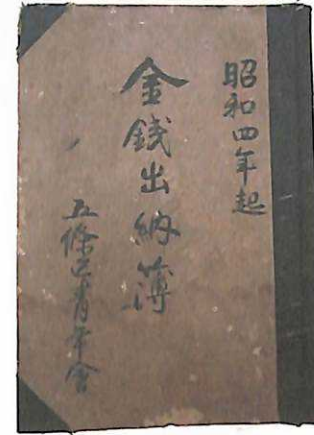 昭和四年起
金銭出納簿
五條区青年會